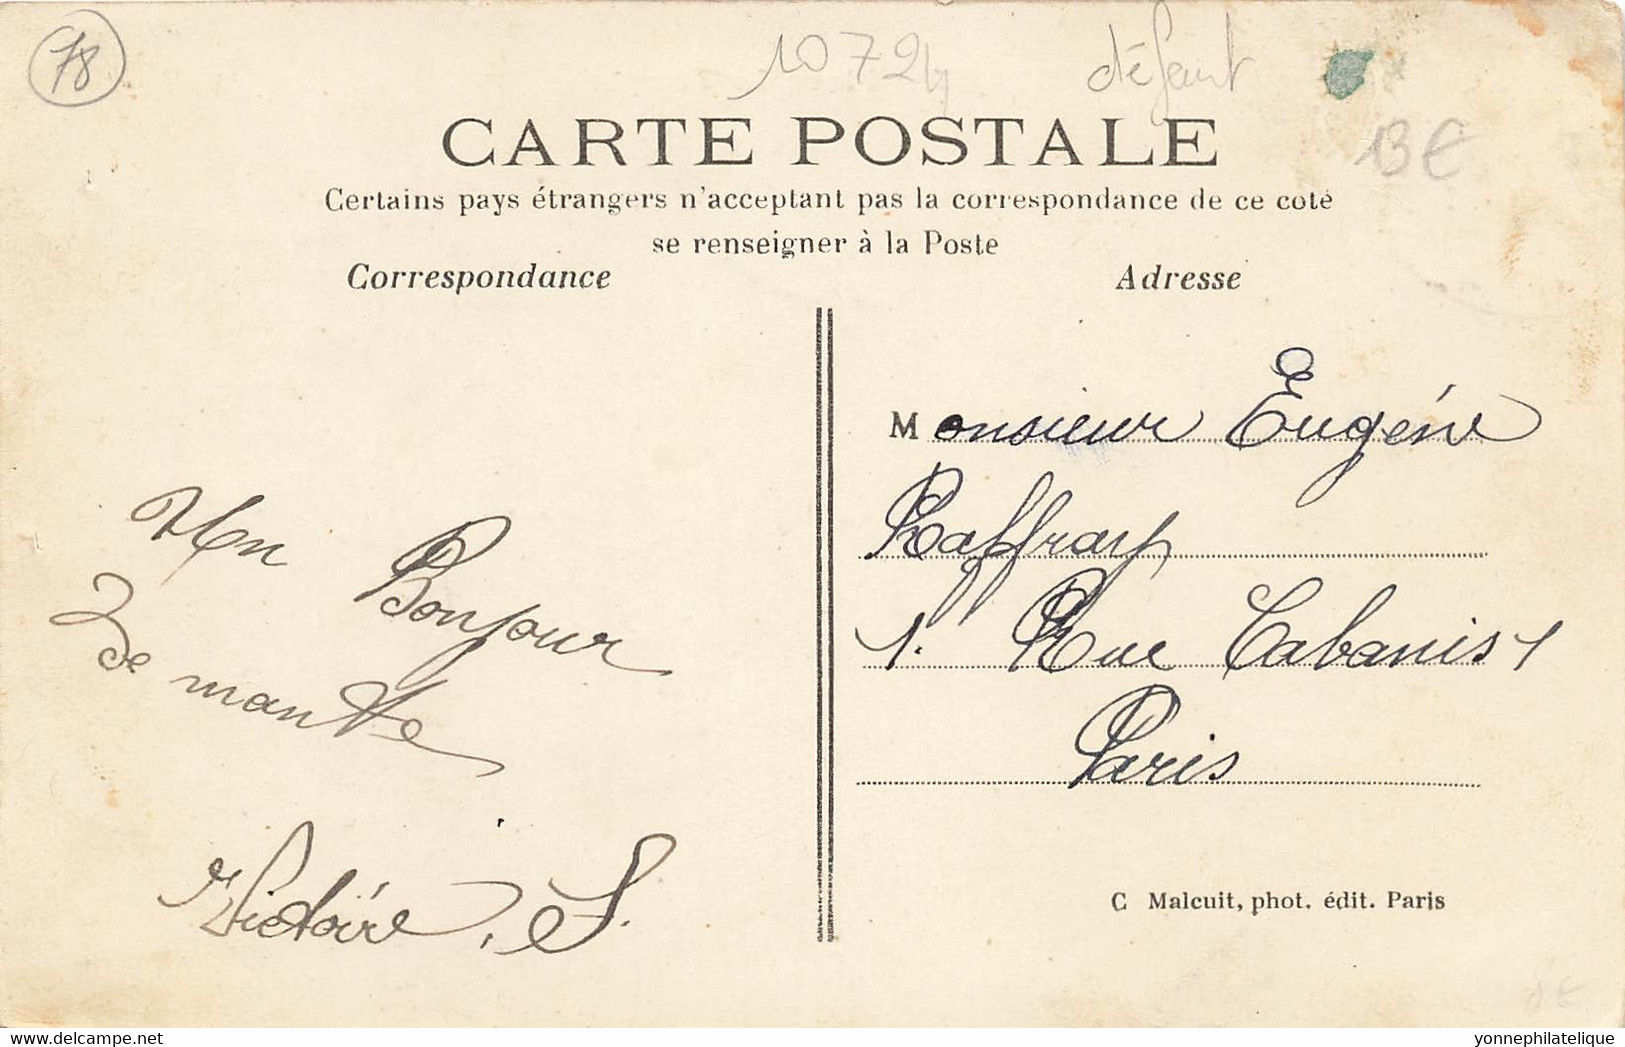 78
10724
défaut
13€
CARTE POSTALE
Certains pays étrangers n'acceptant pas la correspondance de ce coté
se renseigner à la Poste
Correspondance
Adresse
Un Bonjour
de mantte
Victoire. S.
Monsieur Eugéne
Raffray
1. Rue Cabanis 1
Paris
C Malcuit, phot. édit. Paris
8€
delcampe.net
yonnephilatelique